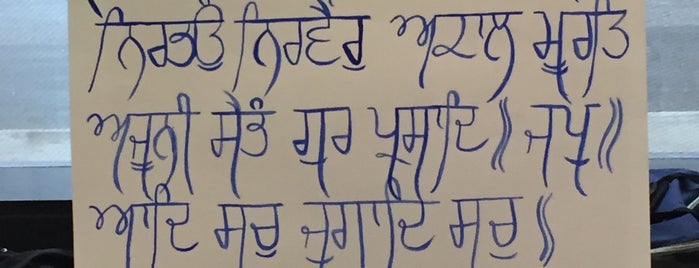 ਨਿਰਭਉ ਨਿਰਵੈਰੁ ਅਕਾਲ ਮੂਰਤਿ
ਅਜੂਨੀ ਸੈਭੰ ਗੁਰ ਪ੍ਰਸਾਦਿ॥ ਜਪੁ॥
ਆਦਿ ਸਚੁ ਜੁਗਾਦਿ ਸਚੁ॥